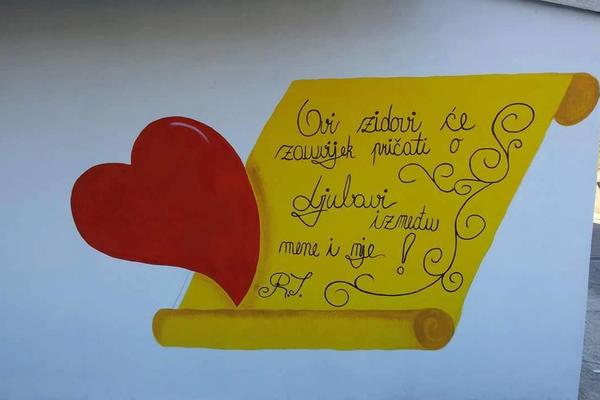 Ovi zidovi će
zauvijek pričati o
Ljubavi
između
mene i nje !
R.J.